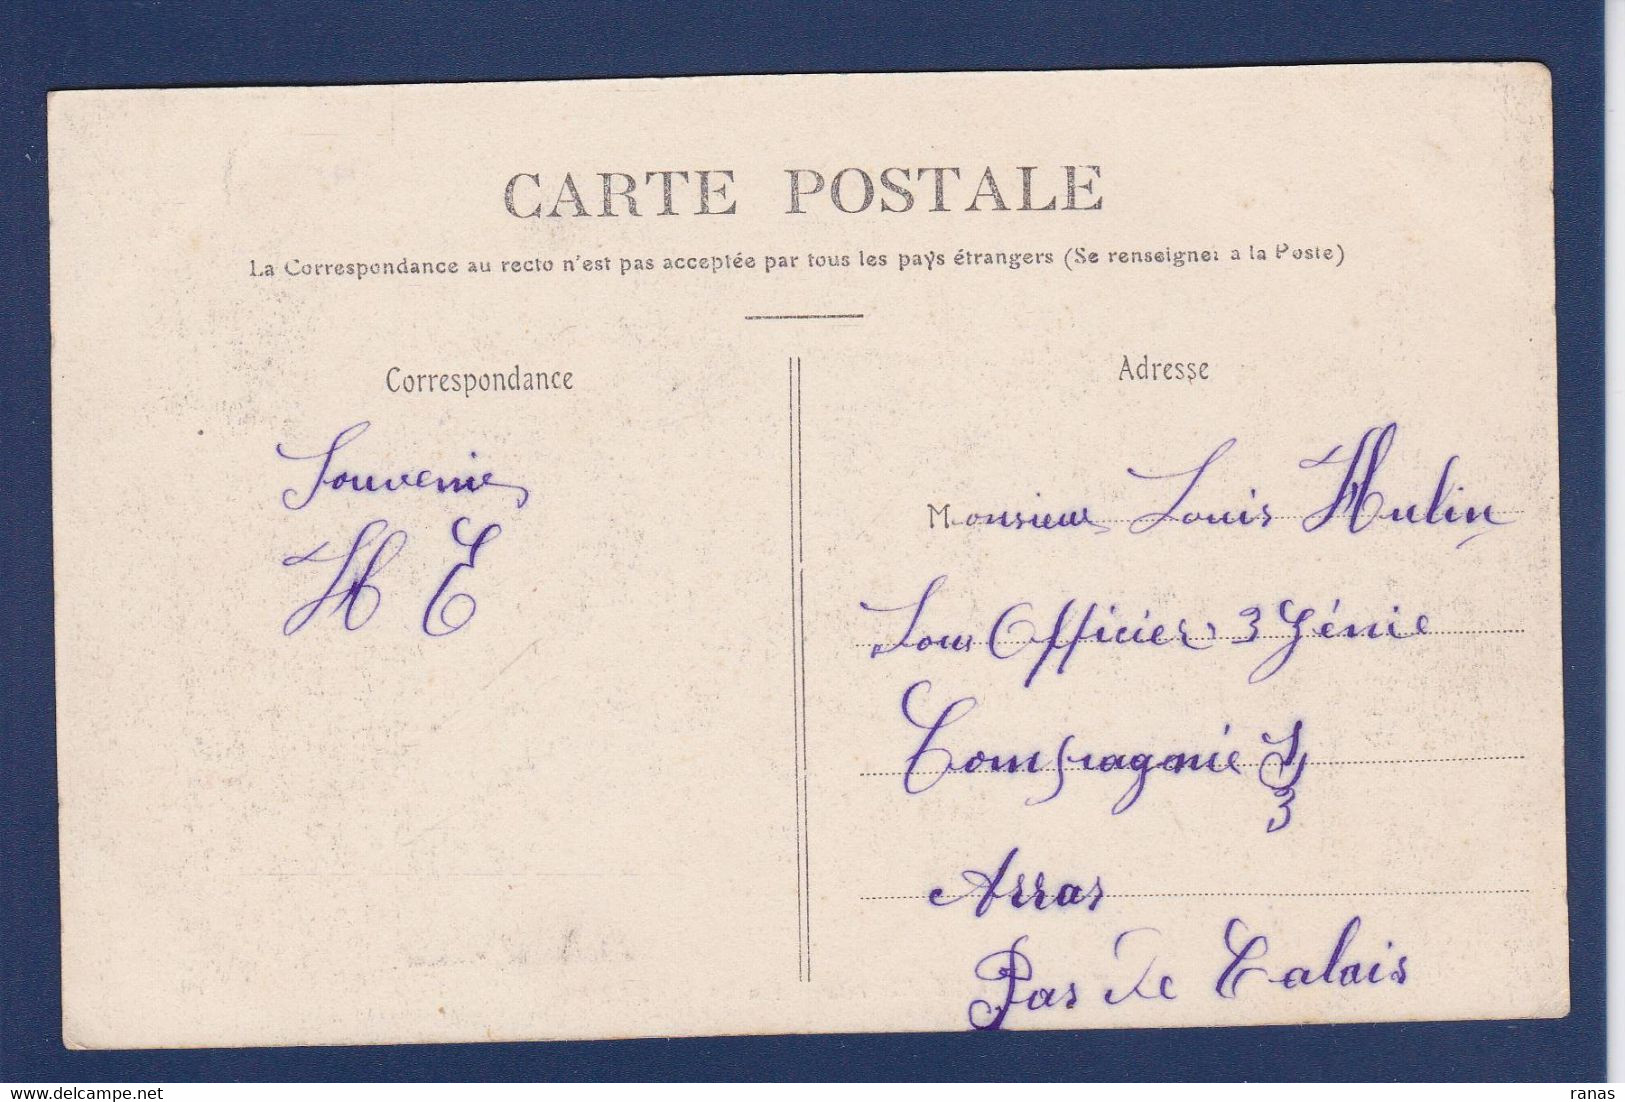 CARTE POSTALE
La Correspondance au recto n'est pas acceptée par tous les pays étrangers (Se renseigner a la Poste)
Correspondance
Souvenir
H E
Adresse
Monsieur Louis Hulin
Sous Officier 3 Génie
Compagnie
3
Arras
Pas De Calais
ranas
www.delcampe.net